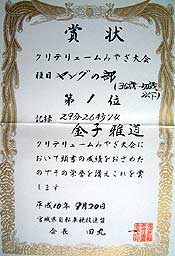 賞状
クリテリュームみやぎ大会
種目 マングの部
第1位
記録
金子雅道
クリテリュームみやぎ大会に
おいて頭書の成績をおさめた
のでその栄誉を讃えこれを賞
します
平成10年9月20日
宮城県自転車競技連盟
会長 田丸